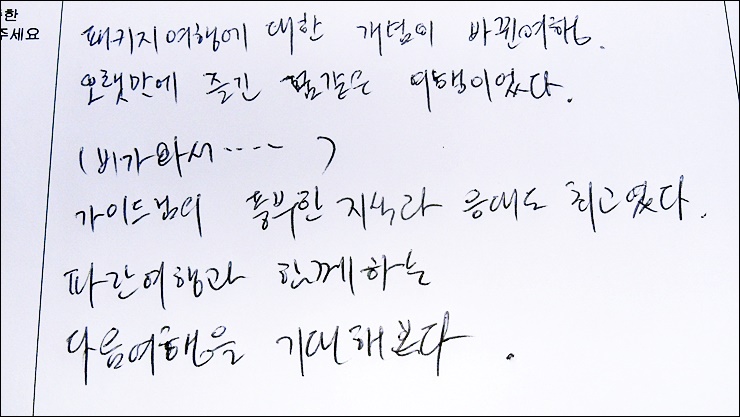 한
주세요
패키지여행에 대한 개념이 바뀐여행.
오랫만에 즐긴 꿈같은 여행이었다.
(비가와서.....)
가이드님의 풍부한 지식과 응대도 최고였다.
파란여행과 함께하는
다음여행을 기대해본다.